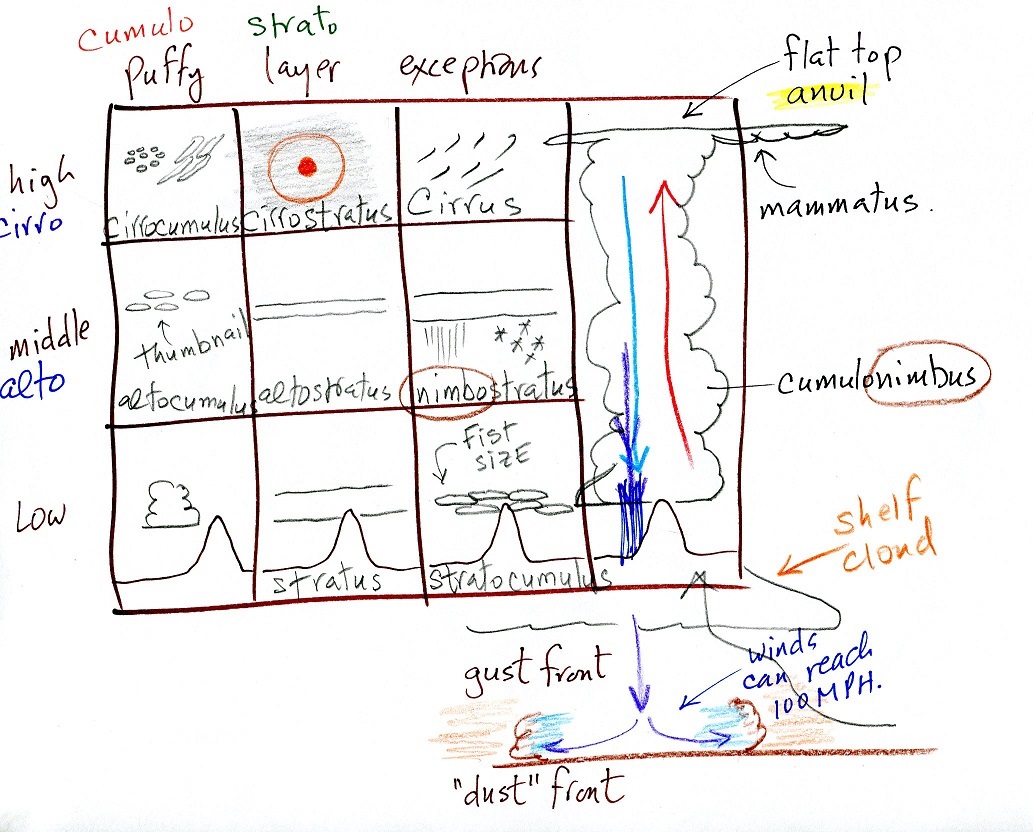 cumulo
strato
puffy
layer
exceptions
flat top
anvil
high
cirro
cirrocumulus
cirrostratus
Cirrus
mammatus.
middle
alto
thumbnail
altocumulus
altostratus
nimbostratus
cumulonimbus
Low
Fist
SIZE
stratus
stratocumulus
shelf
cloud
gust front
winds
can reach
100 MPH.
"dust" front